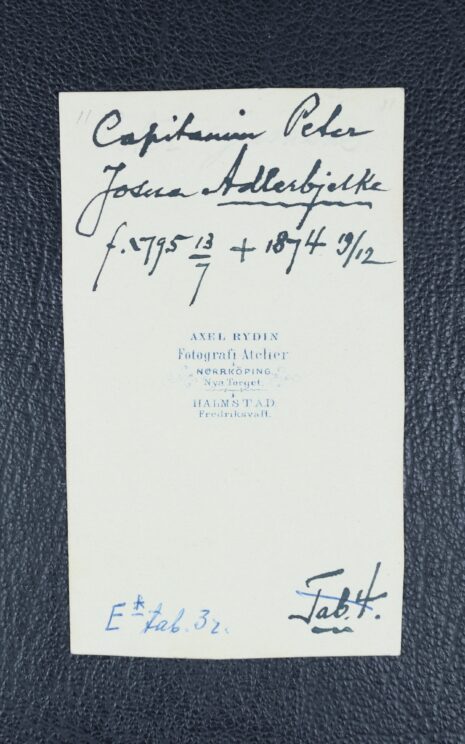 Capitainen Peter
Josua Adlerbjelke
f. 1795 13/7 + 1874 19/12
AXEL RYDIN
Fotografi Atelier
NORRKÖPING.
Nya Torget.
HALMSTAD.
Fredriksvall.
Tab. 4.
E* tab. 32.